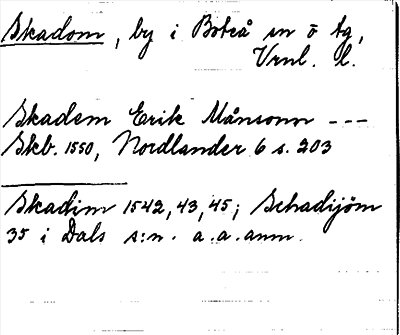 Skadom, by i Boteå sn ö tg,
Vrnl. l.
Skadem Erik Månsonn ---
Skb. 1550, Nordlander 6 s. 203
Skadim 1542, 43, 45; Schadijöm
35 i Dals s:n. a.a. anm.